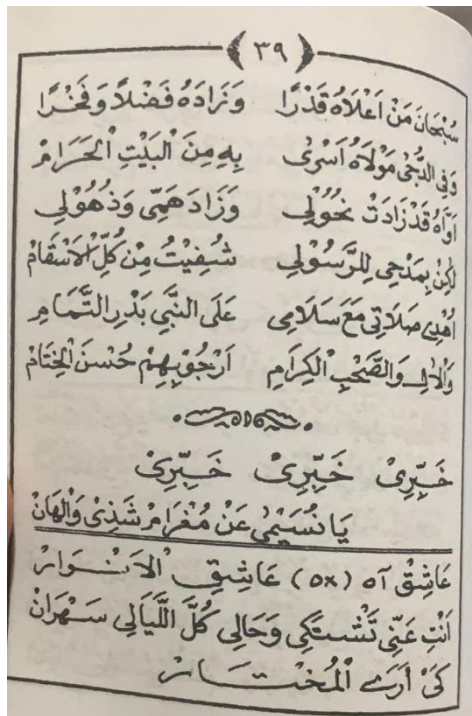 ٣٩
سُبْحَانَ مَنْ اَعْلَاهُ قَدْرًا وَزَادَهُ فَضْلًا وَفَخْرًا
وَفِي الدُّجٰى مَوْلَاهُ اَسْرٰى بِهِ مِنَ الْبَيْتِ الْحَرَامْ
اَوَّاهُ قَدْ زَادَتْ نُحُوْلِى وَزَادَ هَمِّى وَذُهُوْلِى
لٰكِنْ بِمَدْحِى لِلرَّسُوْلِى شُفِيْتُ مِنْ كُلِّ الْاَسْقَامْ
اُهْدِى صَلَاتِى مَعَ سَلَامِى عَلَى النَّبِي بَدْرِ التَّمَامِ
وَالْاٰلِ وَالصَّحْبِ الْكِرَامِ اَرْجُوْ بِهِمْ حُسْنَ الْخِتَامْ
خَبِّرِىْ خَبِّرِىْ خَبِّرِىْ
يَا نُسَيْمِى عَنْ مُغْرَامْ شَذِىْ وَالْهَانْ
عَاشِقْ آه (٥x) عَاشِقِ الْاَنْوَارْ
اَنْتِ عَنِّى تَشْتَكِى وَحَالِى كُلَّ اللَّيَالِى سَهْرَانْ
كَىْ اَرَى الْمُخْتَارْ